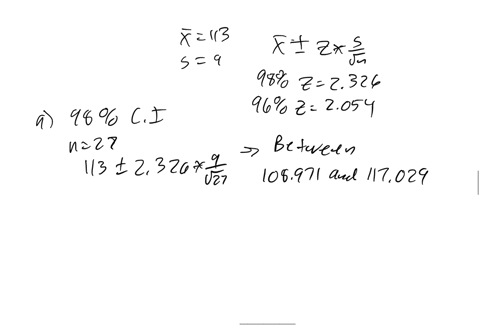 x̄ = 113
s = 9
x̄ ± z * s/√n
98% z = 2.326
96% z = 2.054
a) 98% C.I
n = 27
113 ± 2.326 * 9/√27 ⇒ Between
108.971 and 117.029